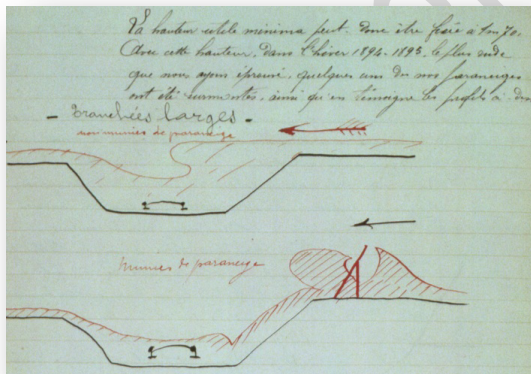 La hauteur utile minima peut donc être fixée à 1m70.
Avec cette hauteur, dans l'hiver 1894-1895, le plus rude
que nous ayons éprouvé, quelques uns de nos paraneiges
ont été surmontés, ainsi qu'en témoigne les profils ci-
- Tranchées larges -
non munies de paraneige
Munies de paraneige